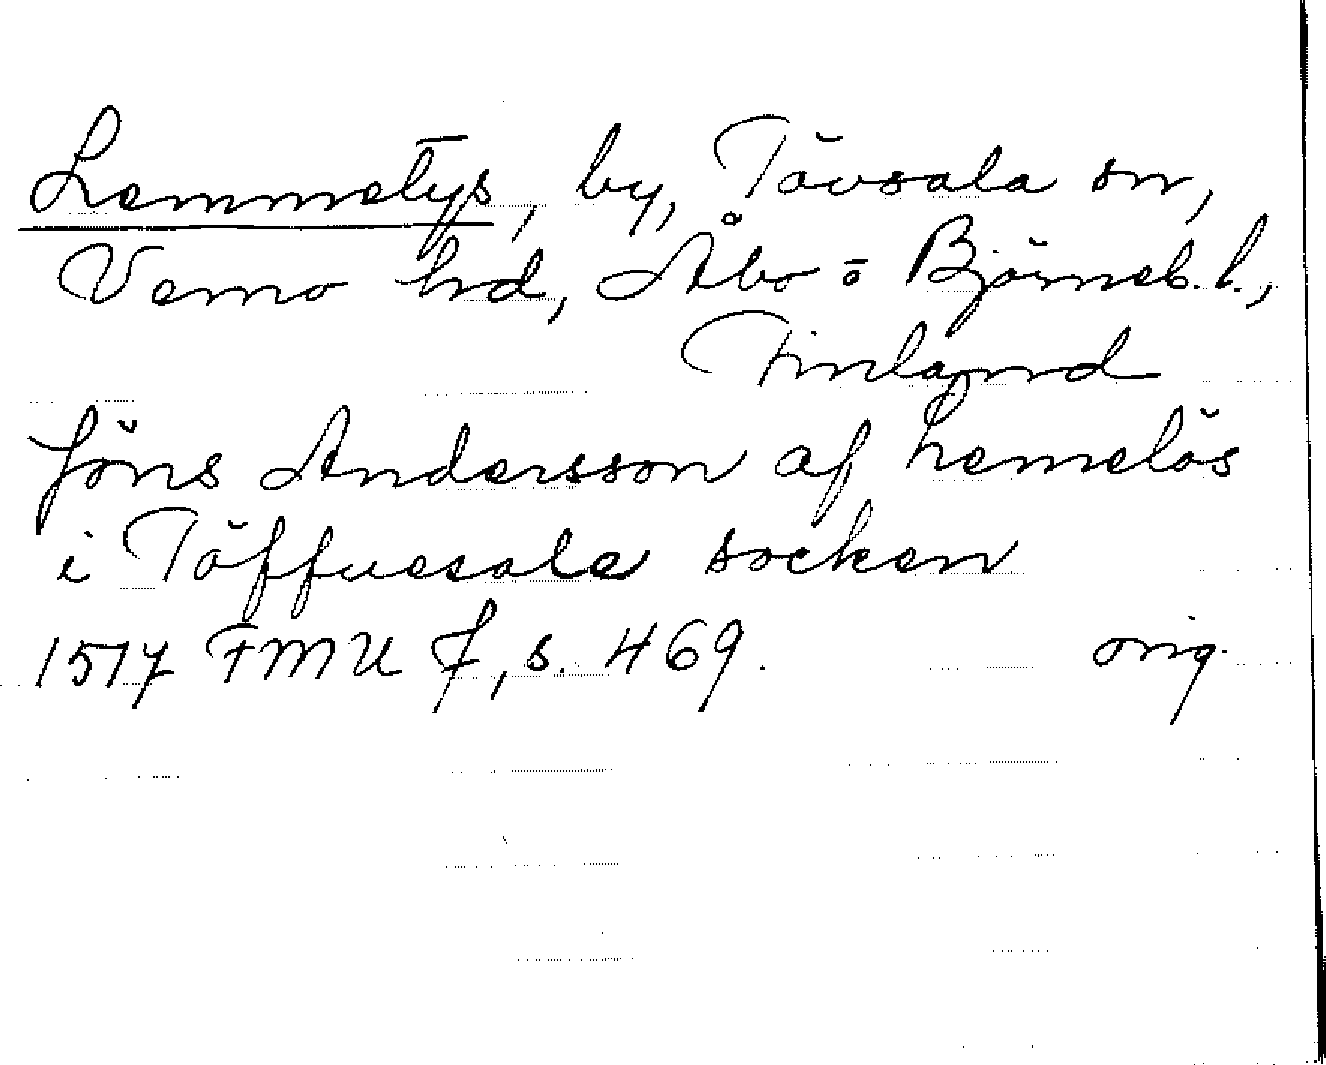 Lemmetys, by, Tövsala sn,
Vemo hd, Åbo o Björneb. l.,
Finland
Jöns Andersson af hemelös
i Töffuesala socken
1517 FMU 7, s. 469. orig.